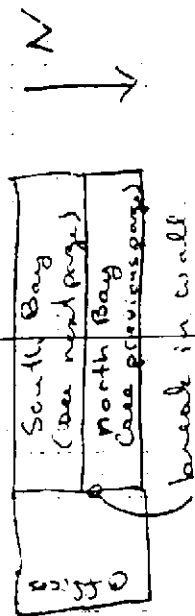 N
South Bay
(see next page)
North Bay
(see previous page)
Office
break in wall